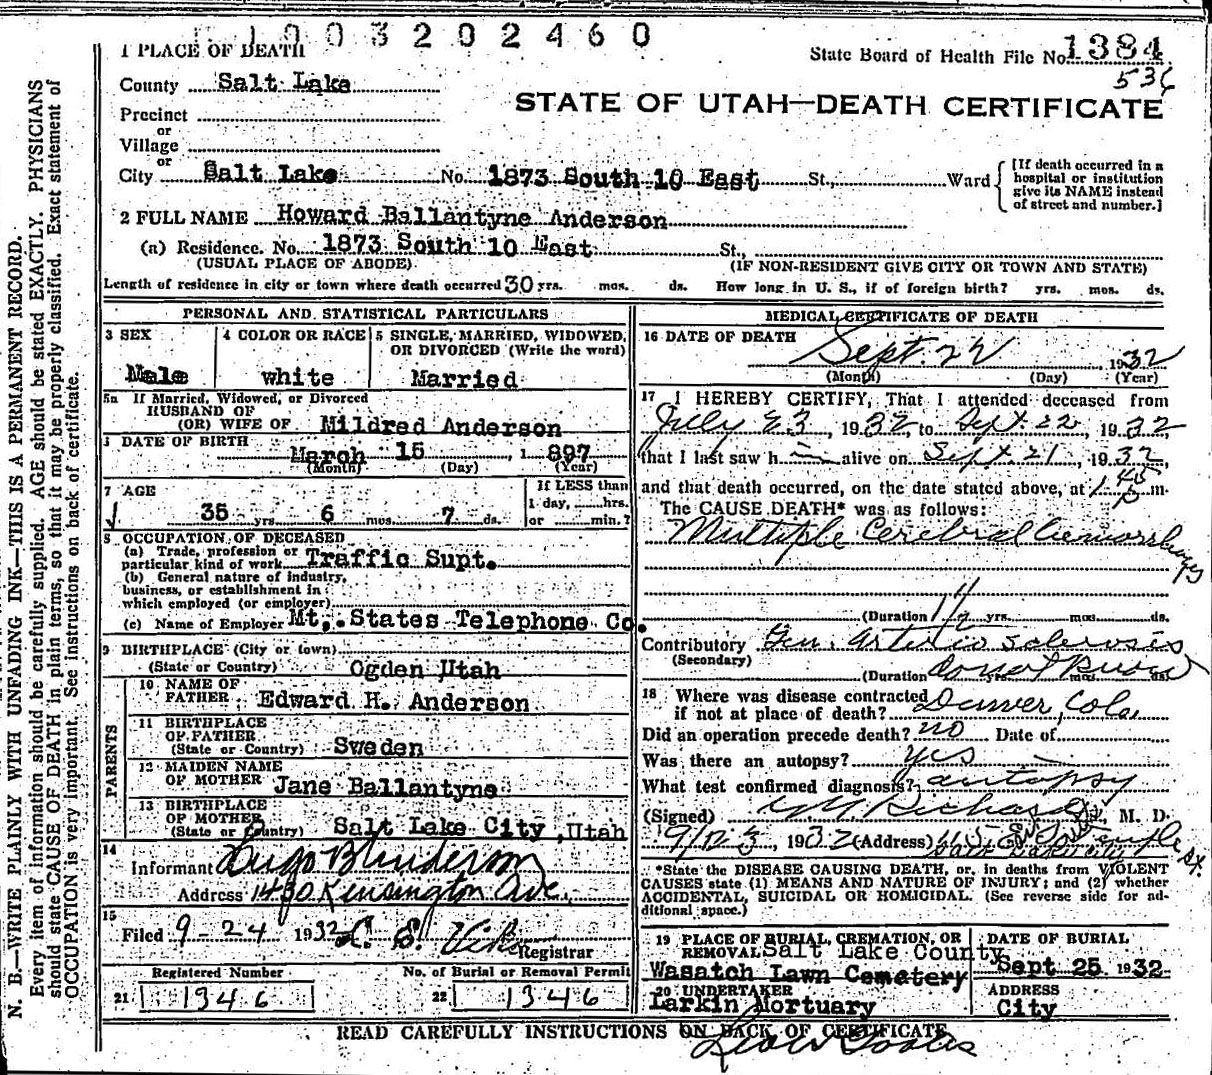 1003202460
1 PLACE OF DEATH
State Board of Health File No. 1384
County Salt Lake
536
STATE OF UTAH—DEATH CERTIFICATE
Precinct
or
Village
or
City Salt Lake No. 1873 South 10 East St., Ward
[If death occurred in a
hospital or institution
give its NAME instead
of street and number.]
2 FULL NAME Howard Ballantyne Anderson
(a) Residence. No. 1873 South 10 East St.,
(USUAL PLACE OF ABODE) (IF NON-RESIDENT GIVE CITY OR TOWN AND STATE)
Length of residence in city or town where death occurred 30 yrs. mos. ds. How long in U. S., if of foreign birth? yrs. mos. ds.
PERSONAL AND STATISTICAL PARTICULARS
3 SEX 4 COLOR OR RACE 5 SINGLE, MARRIED, WIDOWED,
OR DIVORCED (Write the word)
Male white Married
5a If Married, Widowed, or Divorced
HUSBAND OF
(OR) WIFE OF Mildred Anderson
DATE OF BIRTH
March 15 1897
(Month) (Day) (Year)
7 AGE If LESS than
1 day, hrs.
35 yrs. 6 mos. 7 ds. or min.?
8 OCCUPATION OF DECEASED
(a) Trade, profession or
particular kind of work Traffic Supt.
(b) General nature of industry,
business, or establishment in
which employed (or employer)
(c) Name of Employer Mt. States Telephone Co.
9 BIRTHPLACE (City or town)
(State or Country) Ogden Utah
PARENTS
10 NAME OF
FATHER Edward H. Anderson
11 BIRTHPLACE
OF FATHER
(State or Country) Sweden
12 MAIDEN NAME
OF MOTHER Jane Ballantyne
13 BIRTHPLACE
OF MOTHER
(State or Country) Salt Lake City, Utah
14
Informant Hugo B Anderson
Address 1430 Kensington Ave.
15
Filed 9-24 1932
Registrar
Registered Number No. of Burial or Removal Permit
21 1346 22 1346
MEDICAL CERTIFICATE OF DEATH
16 DATE OF DEATH
Sept. 22 1932
(Month) (Day) (Year)
17 I HEREBY CERTIFY, That I attended deceased from
July 23, 1932, to Sept. 22, 1932,
that I last saw h alive on Sept. 21, 1932,
and that death occurred, on the date stated above, at 1 45 p m.
The CAUSE DEATH* was as follows:
Multiple Cerebral hemorrhages
(Duration) 1 1/2 yrs. mos. ds.
Contributory Gen. Arterio sclerosis
(Secondary)
(Duration) do not know yrs. mos. ds.
18 Where was disease contracted
if not at place of death? Denver, Colo.
Did an operation precede death? no Date of
Was there an autopsy? yes
What test confirmed diagnosis? autopsy
(Signed) G. G. Richards, M. D.
9/23, 1932 (Address)
*State the DISEASE CAUSING DEATH, or, in deaths from VIOLENT
CAUSES state (1) MEANS AND NATURE OF INJURY; and (2) whether
ACCIDENTAL, SUICIDAL OR HOMICIDAL. (See reverse side for ad-
ditional space.)
19 PLACE OF BURIAL, CREMATION, OR DATE OF BURIAL
REMOVAL Salt Lake County
Wasatch Lawn Cemetery Sept 25 1932
20 UNDERTAKER ADDRESS
Larkin Mortuary City
READ CAREFULLY INSTRUCTIONS ON BACK OF CERTIFICATE
N. B.—WRITE PLAINLY WITH UNFADING INK—THIS IS A PERMANENT RECORD.
Every item of information should be carefully supplied. AGE should be stated EXACTLY. PHYSICIANS
should state CAUSE OF DEATH in plain terms, so that it may be properly classified. Exact statement of
OCCUPATION is very important. See instructions on back of certificate.